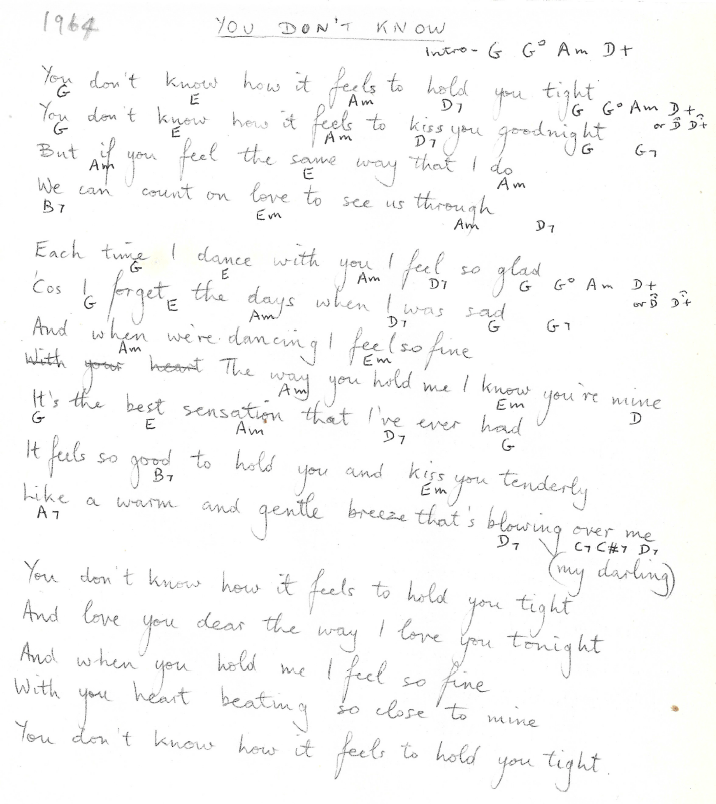 1964 YOU DON'T KNOW
Intro - G G° Am D+
You don't know how it feels to hold you tight
G E Am D7 G G° Am D+
You don't know how it feels to kiss you goodnight or D D+
G E Am D7 G G7
But if you feel the same way that I do
Am E Am
We can count on love to see us through
B7 Em Am D7
Each time I dance with you I feel so glad
G E Am D7 G G° Am D+
'Cos I forget the days when I was sad or D D+
G E Am D7 G G7
And when we're dancing I feel so fine
Am Em
With your heart The way you hold me I know you're mine
Am Em D
It's the best sensation that I've ever had
G E Am D7 G
It feels so good to hold you and kiss you tenderly
B7 Em
Like a warm and gentle breeze that's blowing over me
A7 D7 C7 C#7 D7
(my darling)
You don't know how it feels to hold you tight
And love you dear the way I love you tonight
And when you hold me I feel so fine
With you heart beating so close to mine
You don't know how it feels to hold you tight.